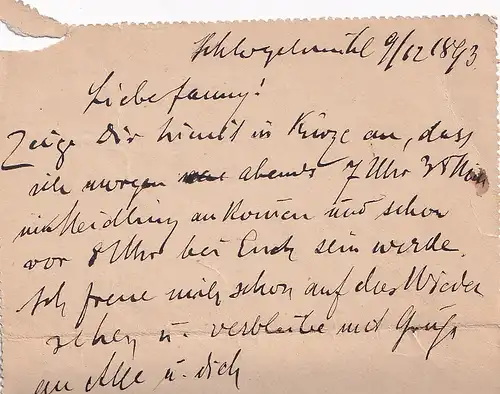 Schlögelmühl 9/12 1893
Liebe Fanny!
Zeige Dir hiemit in Kürze an, dass
ich morgen abends 7 Uhr 38 Min
in Meidling ankomen und schon
vor 8 Uhr bei Euch sein werde.
Ich freue mich schon auf das Wieder
sehen u. verbleibe mit Gruß
an Alle u. dich